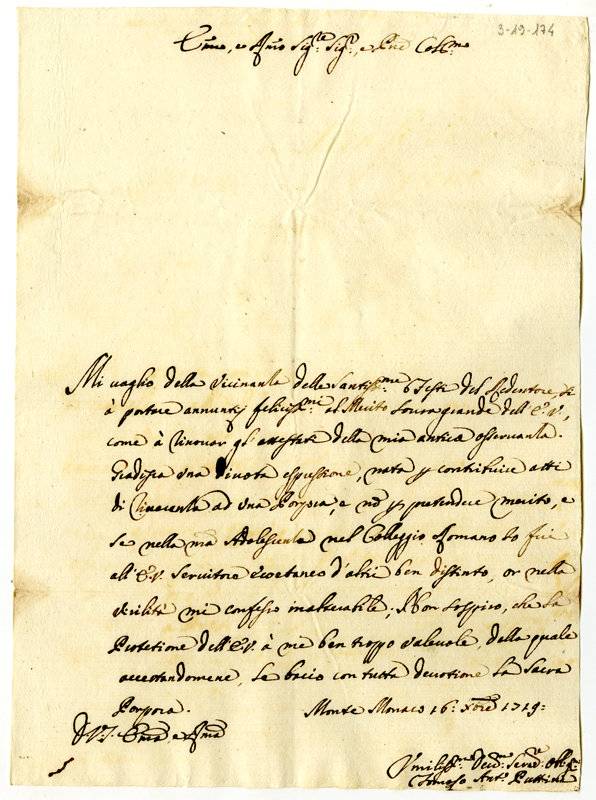 3-19-174
Em̃o, e Rm̃o Sig.re Sig.r, e Pne Coll.mo
Mi vaglio della vicinanza delle Santiss.me Feste del Redentore sì
à portare annuntij feliciss.mi al Merito Souragrande dell'E.V.,
come à rinovar gl'attestati della mia antica osservanza.
Gradisca una divota espressione, nata p contribuire atti
di riverenza ad una Porpora, e nõ p pretendere merito, e
se nella mia Adolescenza nel Colleggio Romano Io fui
all'E.V. Servitore coetaneo d'altri ben distinto, or nella
virilità mi confesso inalterabile; Non sospiro, che la
Protetione dell'E.V. à me ben troppo valevole, della quale
accertandomene, le bacio con tutta devotione la Sacra
Porpora.
Monte Monaco 16: Xbre 1719:
D.V. Em̃a, e Rm̃a
Vmiliss.mo Deu.mo Serv.re Obl.mo
Tomaso Ant.o